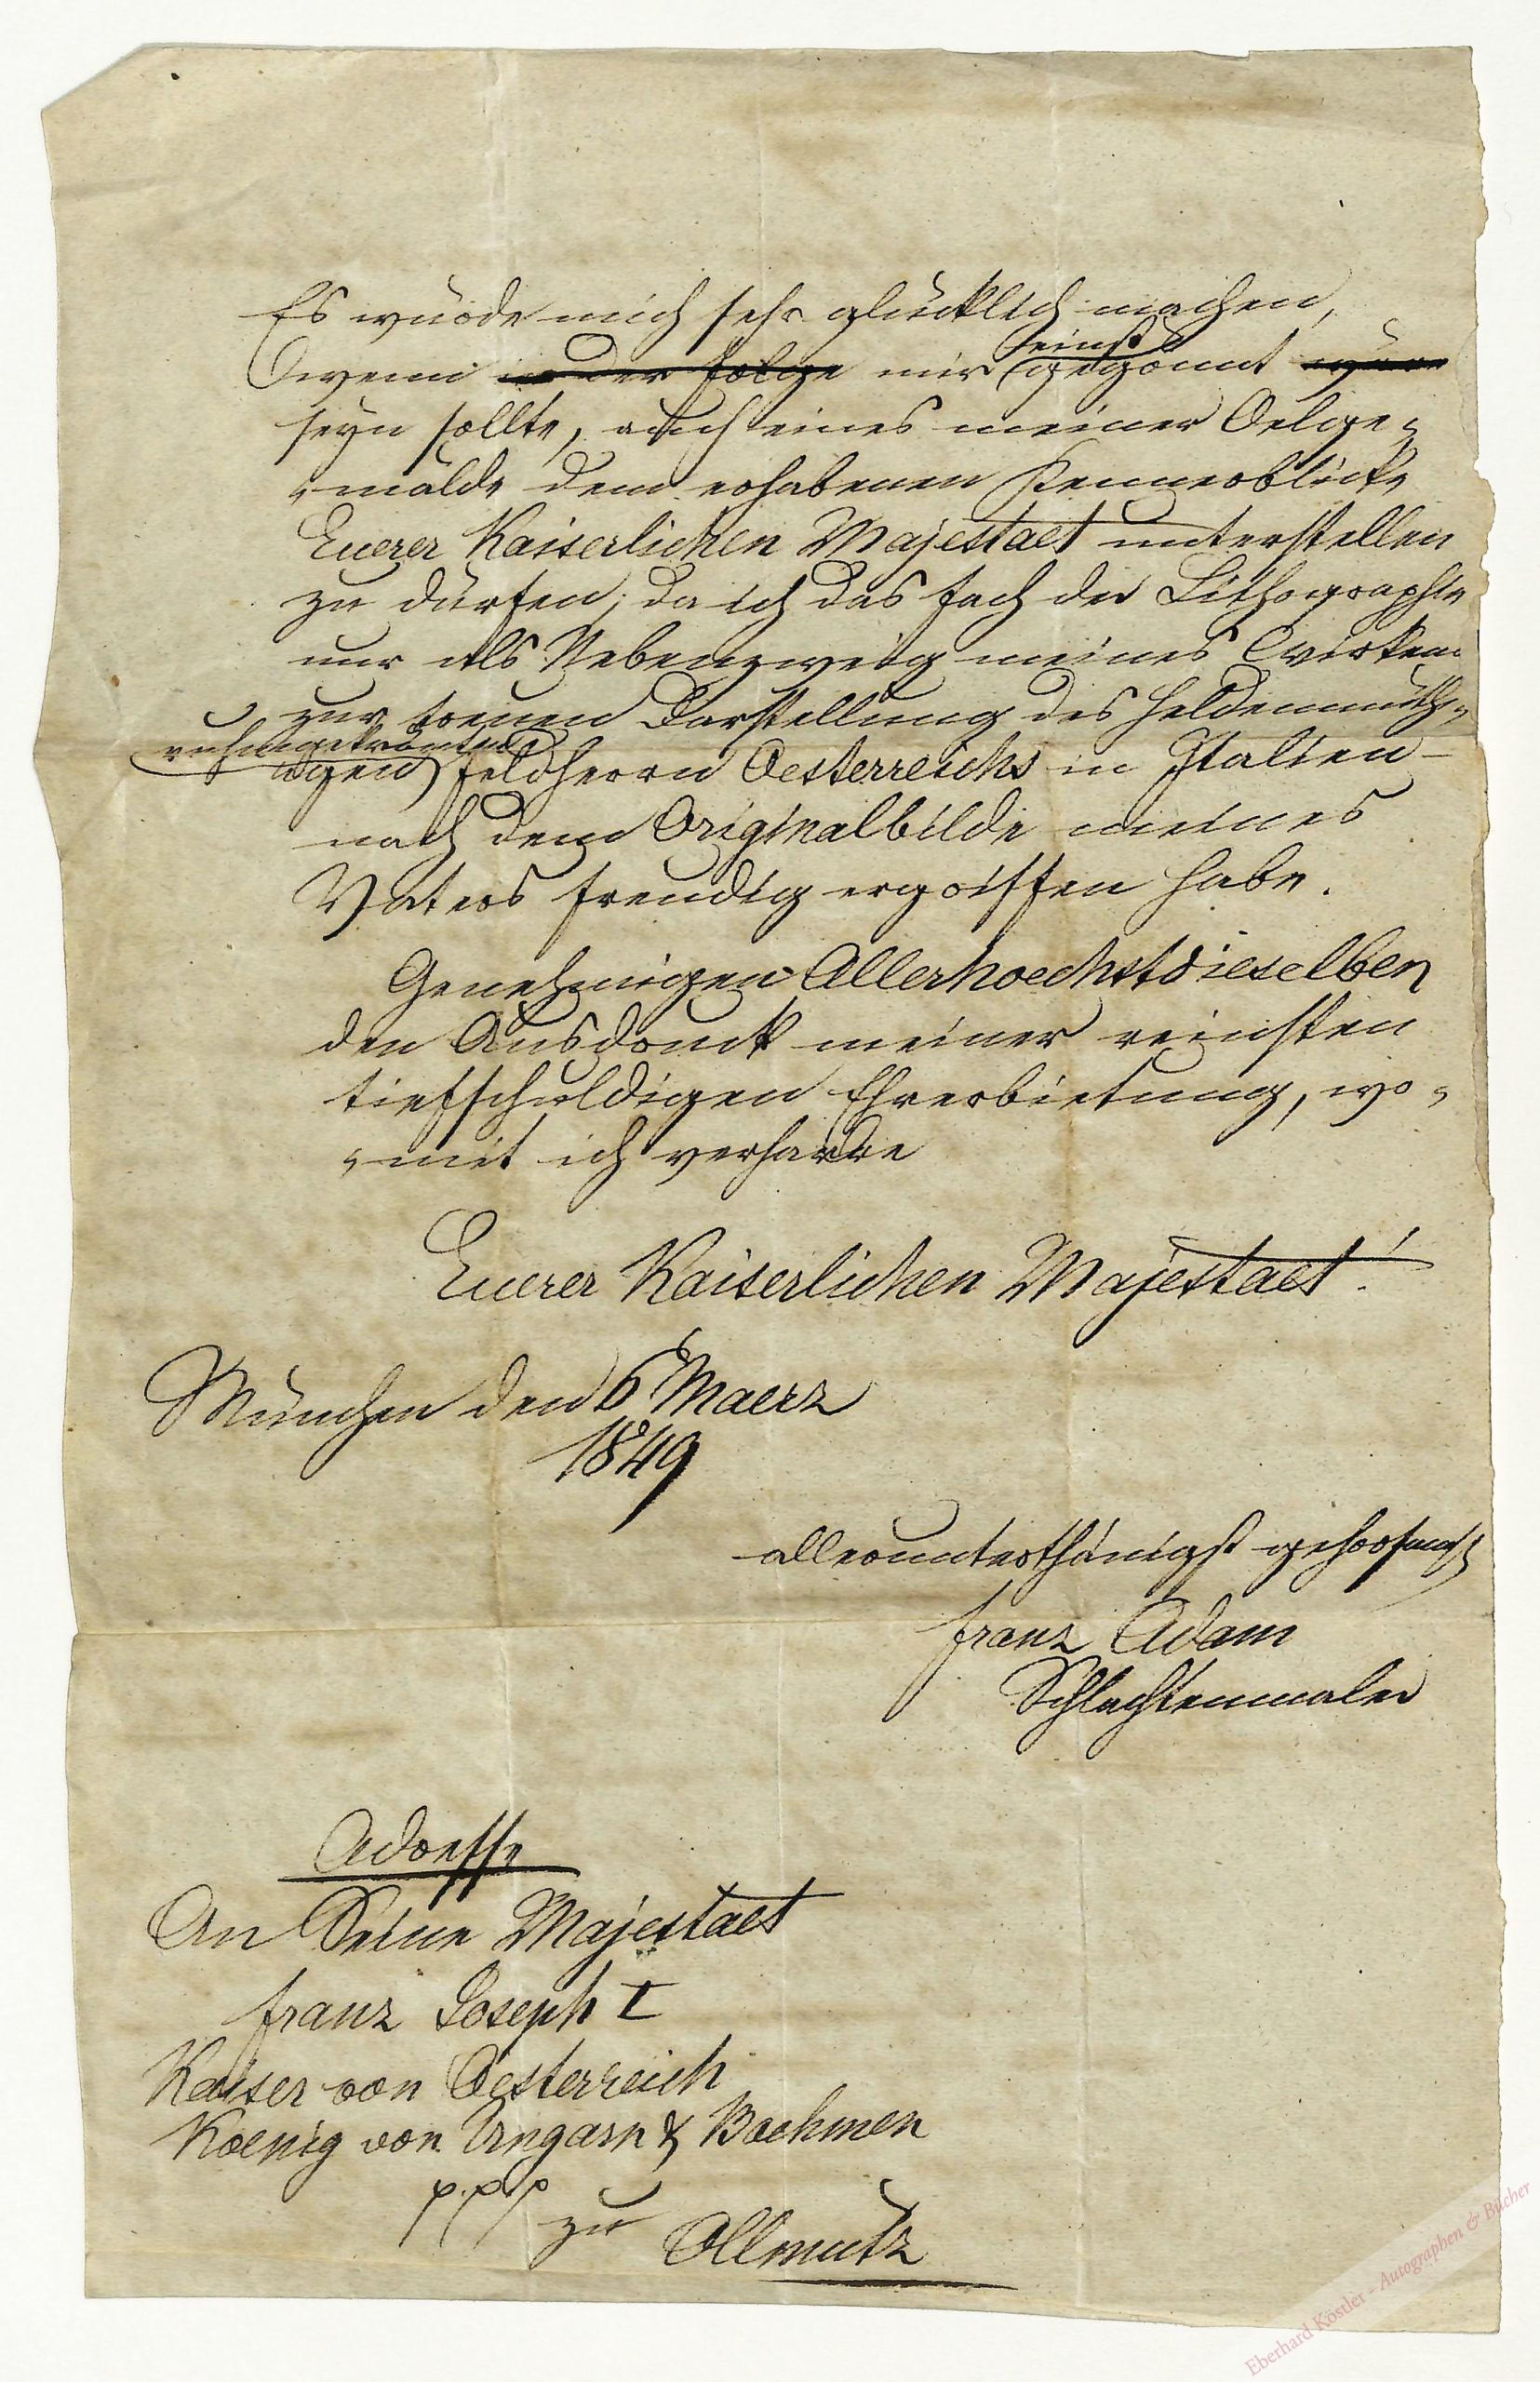 Es würde mich sehr glücklich machen,
wenn in der Folge mir einst gegönnt wäre
seyn sollte, auch eines meiner Oelge-
-mälde dem erhabenen Kennerblicke
Euerer Kaiserlichen Majestaet unterstellen
zu dürfen; da ich das Fach der Lithographie
nur als Nebenzweig meines Wirkens
zur treuen Darstellung des heldenmüthi-
-gen ruhmgekrönten Feldherrn Oesterreichs in Italien –
nach dem Originalbilde meines
Vaters freudig ergriffen habe.
Genehmigen Allerhoechstdieselben
den Ausdruck meiner reinsten
tiefschuldigen Ehrerbietung, wo-
-mit ich verharre
Euerer Kaiserlichen Majestaet!
München den 6 Maerz
1849
allerunterthänigst gehorsamst
Franz Adam
Schlachtenmaler
Adresse
An Seine Majestaet
Franz Joseph I
Kaiser von Oesterreich
Koenig von Ungarn & Boehmen
p.p.p
zu Ollmutz
Eberhard Köstler - Autographen & Bücher